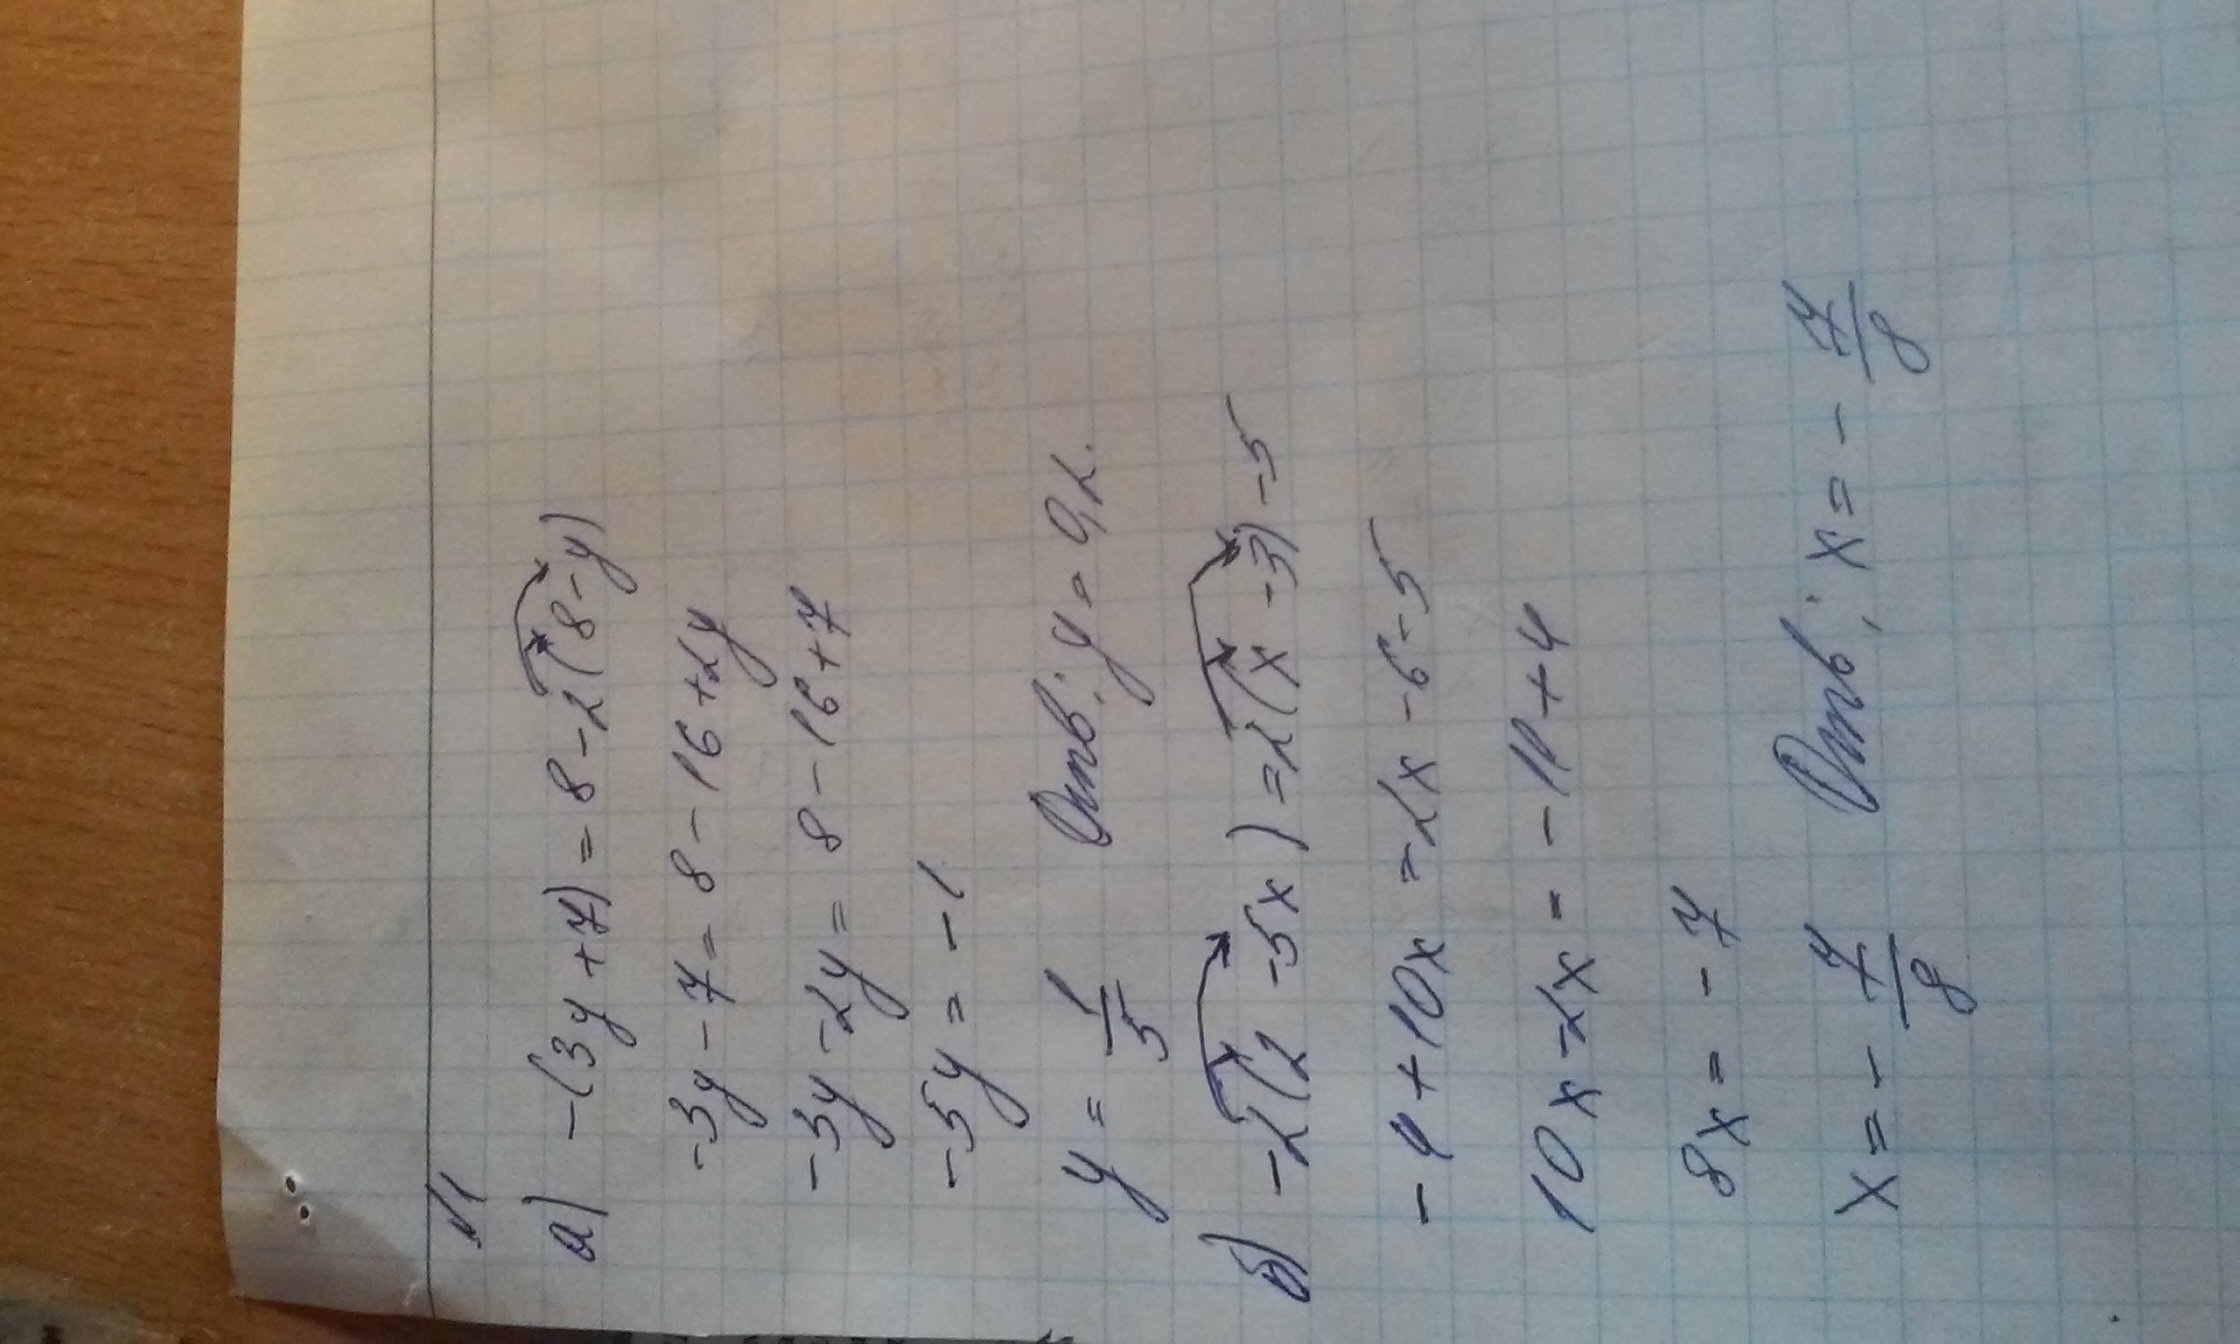 №1
а) -(3y+7)=8-2(8-y)
-3y-7=8-16+2y
-3y-2y=8-16+7
-5y=-1
y=1/5 Ответ: y=0,2.
б) -2(2-5x)=2(x-3)-5
-4+10x=2x-6-5
10x-2x=-11+4
8x=-7
x=-7/8 Ответ: x=-7/8